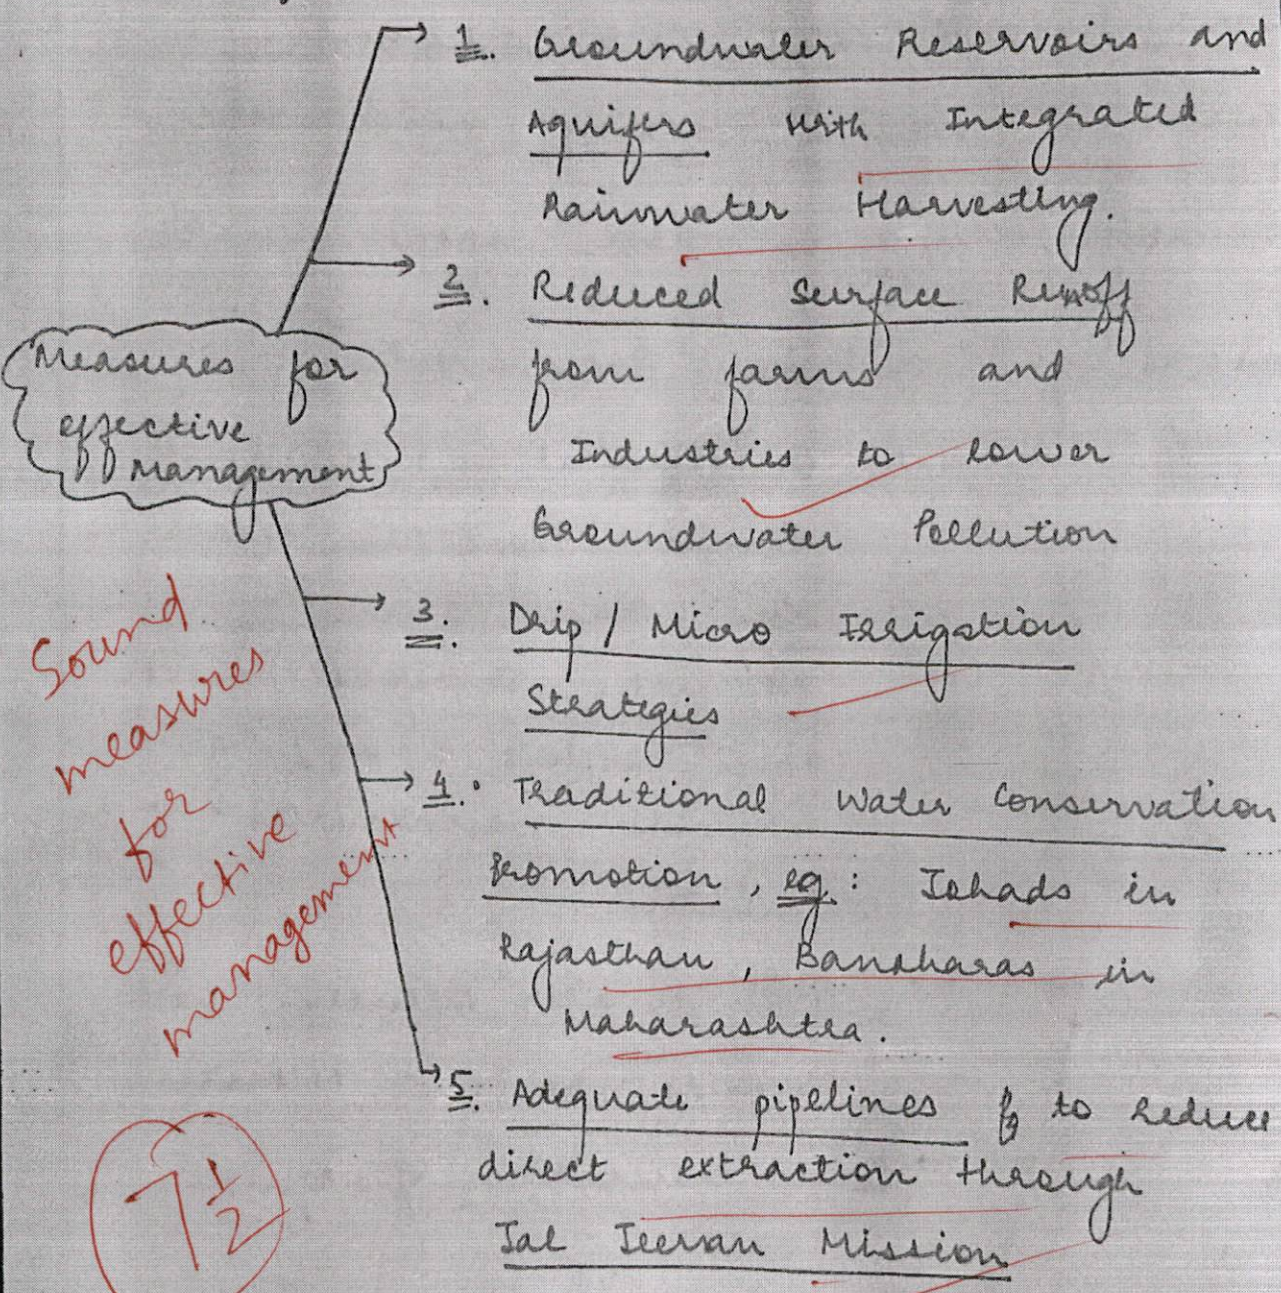 1. Groundwater Reservoirs and
Aquifers with Integrated
Rainwater Harvesting.
2. Reduced Surface Runoff
from farms and
Industries to lower
Groundwater Pollution
Measures for
effective
Management
3. Drip / Micro Irrigation
Strategies
4. Traditional Water Conservation
Promotion, eg: Johads in
Rajasthan, Bandharas in
Maharashtra.
5. Adequate pipelines to reduce
direct extraction through
Jal Jeevan Mission
Sound
measures
for
effective
management
7 1/2